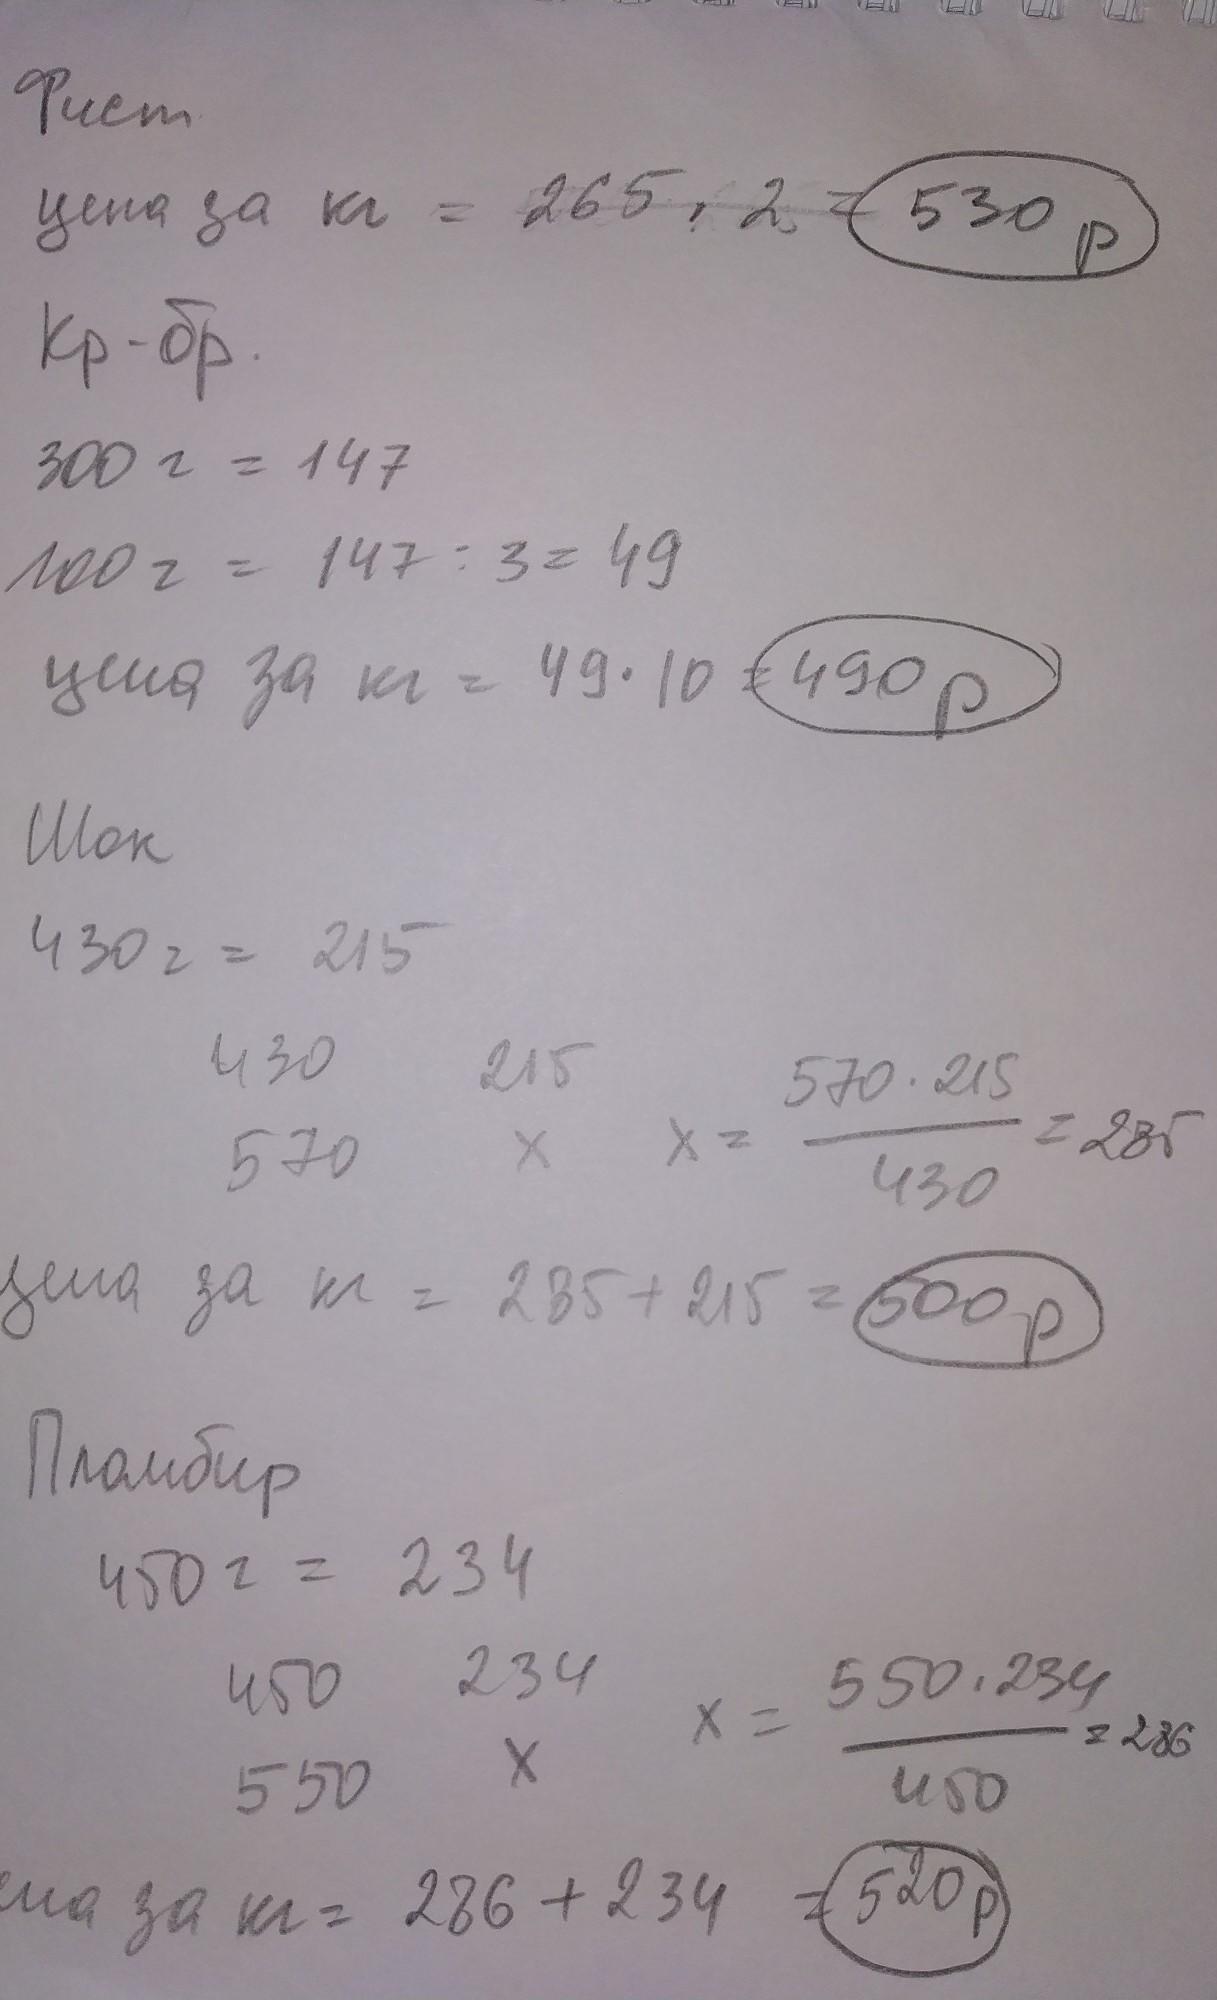 Фист.
цена за кг = 265 · 2 = 530 р
Кр-бр.
300 г = 147
100 г = 147 : 3 = 49
цена за кг = 49 · 10 = 490 р
Шок
430 г = 215
430 215 570 · 215
570 х х = = 285
430
цена за кг = 285 + 215 = 500 р
Пломбир
450 г = 234
450 234 550 · 234
550 х х = = 286
450
ена за кг = 286 + 234 = 520 р